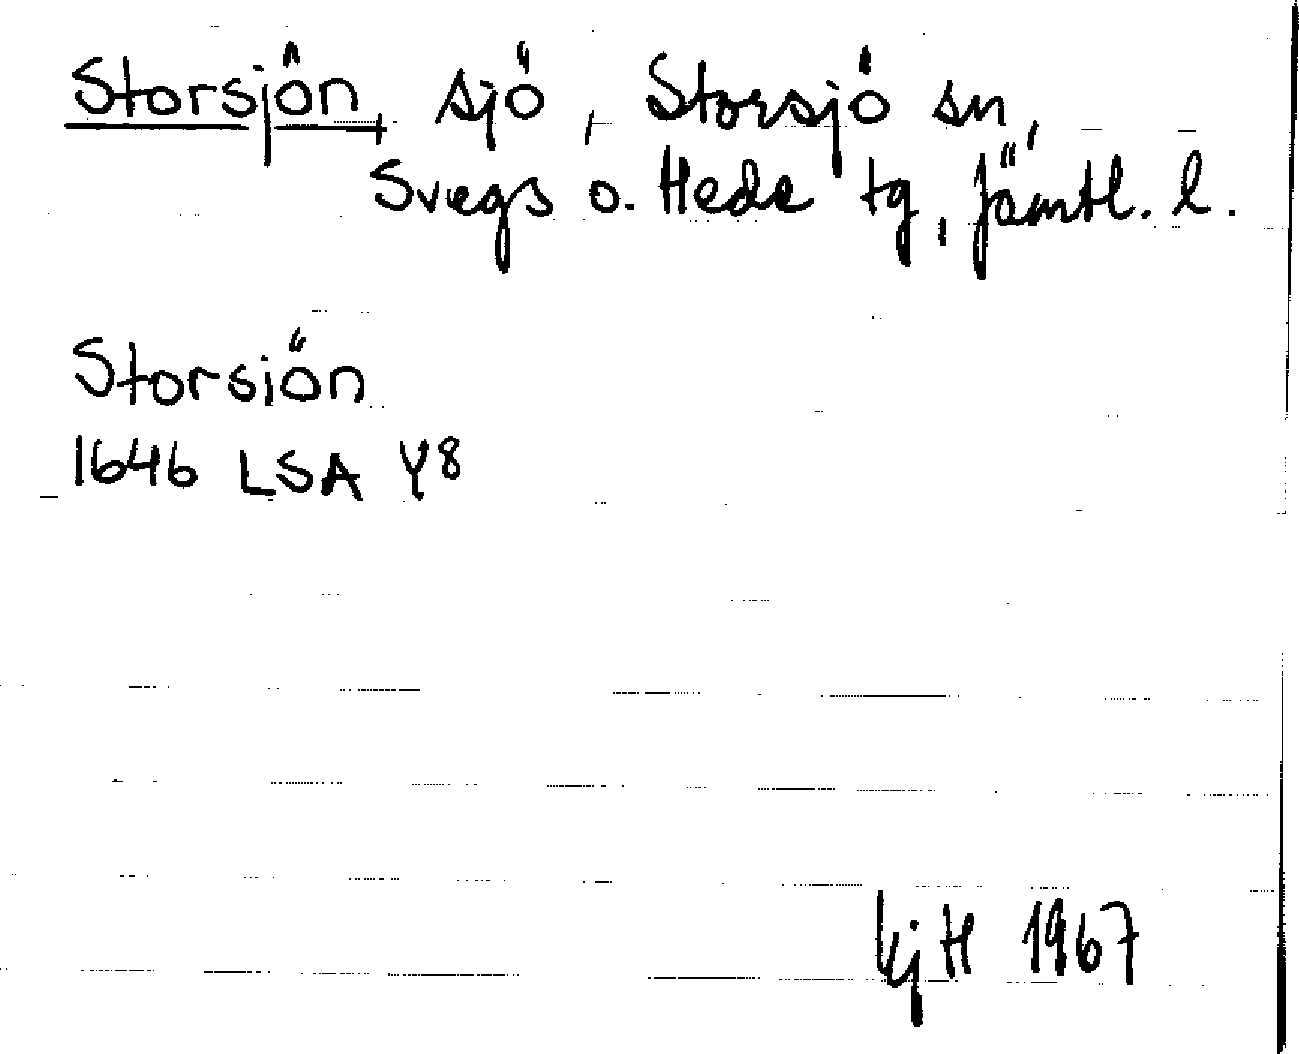 Storsjön, sjö, Storsjö sn,
Svegs o. Hede tg, Jämtl. l.
Storsiön
1646 LSA Y8
KjH 1967